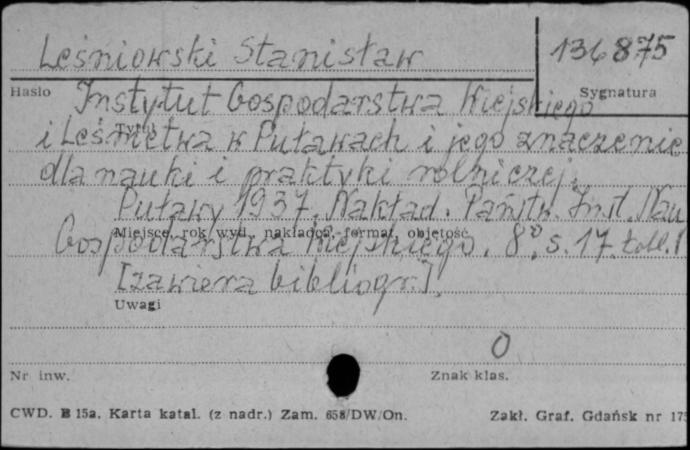 Leśniowski Stanisław
136875
Hasło
Sygnatura
Instytut Gospodarstwa Wiejskiego
i Leśnictwa w Puławach i jego znaczenie
Tytuł
dla nauki i praktyki rolniczej.
Puławy 1937. Nakład. Państw. Inst. Nau
Miejsce, rok wyd., nakładca, format, objętość
Gospodarstwa Wiejskiego. 8°, s. 17.
[zawiera bibliogr.].
Uwagi
O
Nr inw.
Znak klas.
CWD. B 15a. Karta katal. (z nadr.) Zam. 658/DW/On.
Zakł. Graf. Gdańsk nr 175